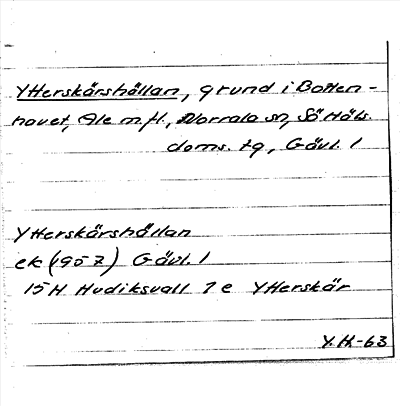 Ytterskärshällan, grund i Botten-
havet, Ale m.fl., Norrala sn, Sö Häls.
doms. tg, Gävl. l
Ytterskärshällan
ek (1957) Gävl. l
15H Hudiksvall 7e Ytterskär
Y.H-63